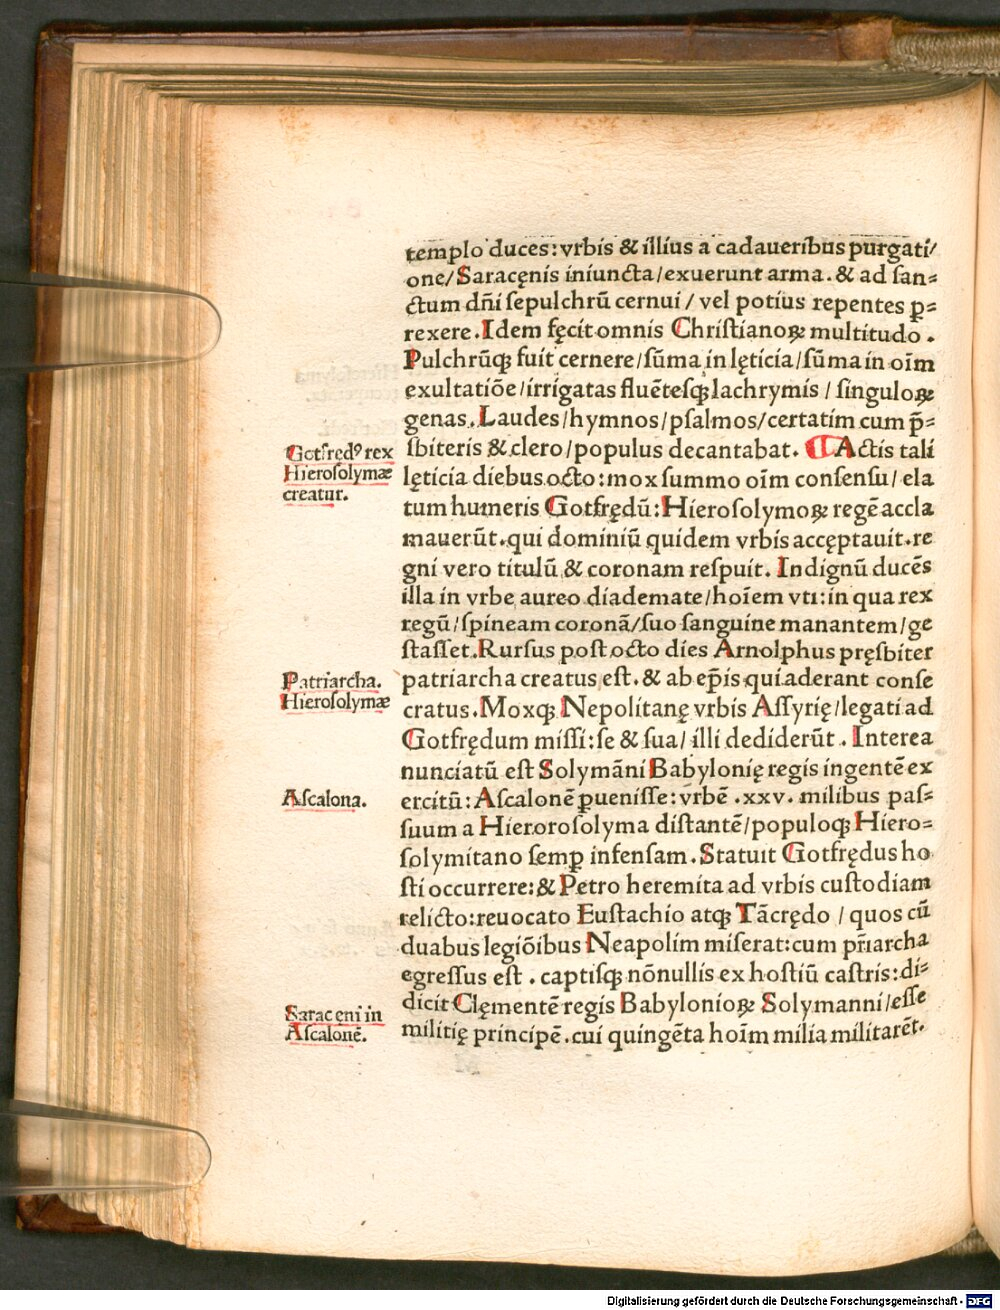 templo duces: vrbis & illius a cadaueribus purgati/
one/ Saracęnis iniuncta/ exuerunt arma. & ad san⸗
ctum dñi sepulchrū cernui / vel potius repentes ꝑ⸗
rexere. Idem fęcit omnis Christianoꝝ multitudo.
Pulchrūqꝫ fuit cernere/ sūma in lęticia/ sūma in oīm
exultatiōe/ irrigatas fluētesqꝫ lachrymis / singuloꝝ
genas. Laudes/ hymnos/ psalmos/ certatim cum p̄⸗
sbiteris & clero/ populus decantabat. ¶ Actis tali
Gotfrędꝰ rex
Hierosolymæ
creatur.
lęticia diebus octo: mox summo oīm consensu/ ela
tum humeris Gotfrędū: Hierosolymoꝝ regē accla
mauerūt. qui dominiū quidem vrbis accęptauit. re
gni vero titulū & coronam respuit. Indignū ducēs
illa in vrbe aureo diademate/ hoīem vti: in qua rex
regū/ spineam coronā/ suo sanguine manantem/ ge
stasset. Rursus post octo dies Arnolphus pręsbiter
Patriarcha.
Hierosolymæ
patriarcha creatus est. & ab ep̄is qui aderant conse
cratus. Moxqꝫ Nepolitanę vrbis Assyrię/ legati ad
Gotfrędum missi: se & sua/ illi dediderūt. Interea
nunciatū est Solymāni Babylonię regis ingentē ex
Ascalona.
ercitū: Ascalonē ꝑuenisse: vrbē .xxv. milibus pas⸗
suum a Hierorosolyma distantē/ populoqꝫ Hiero⸗
solymitano semꝑ infensam. Statuit Gotfrędus ho
sti occurrere: & Petro heremita ad vrbis custodiam
relicto: reuocato Eustachio atqꝫ Tācrędo / quos cū
duabus legiōibus Neapolim miserat: cum pr̄iarcha
egressus est. captisqꝫ nōnullis ex hostiū castris: di⸗
Saraceni in
Ascalonē.
dicit Clęmentē regis Babylonioꝝ Solymanni/ esse
militię principē. cui quingēta hoīm milia militarēt.
Digitalisierung gefördert durch die Deutsche Forschungsgemeinschaft - DFG